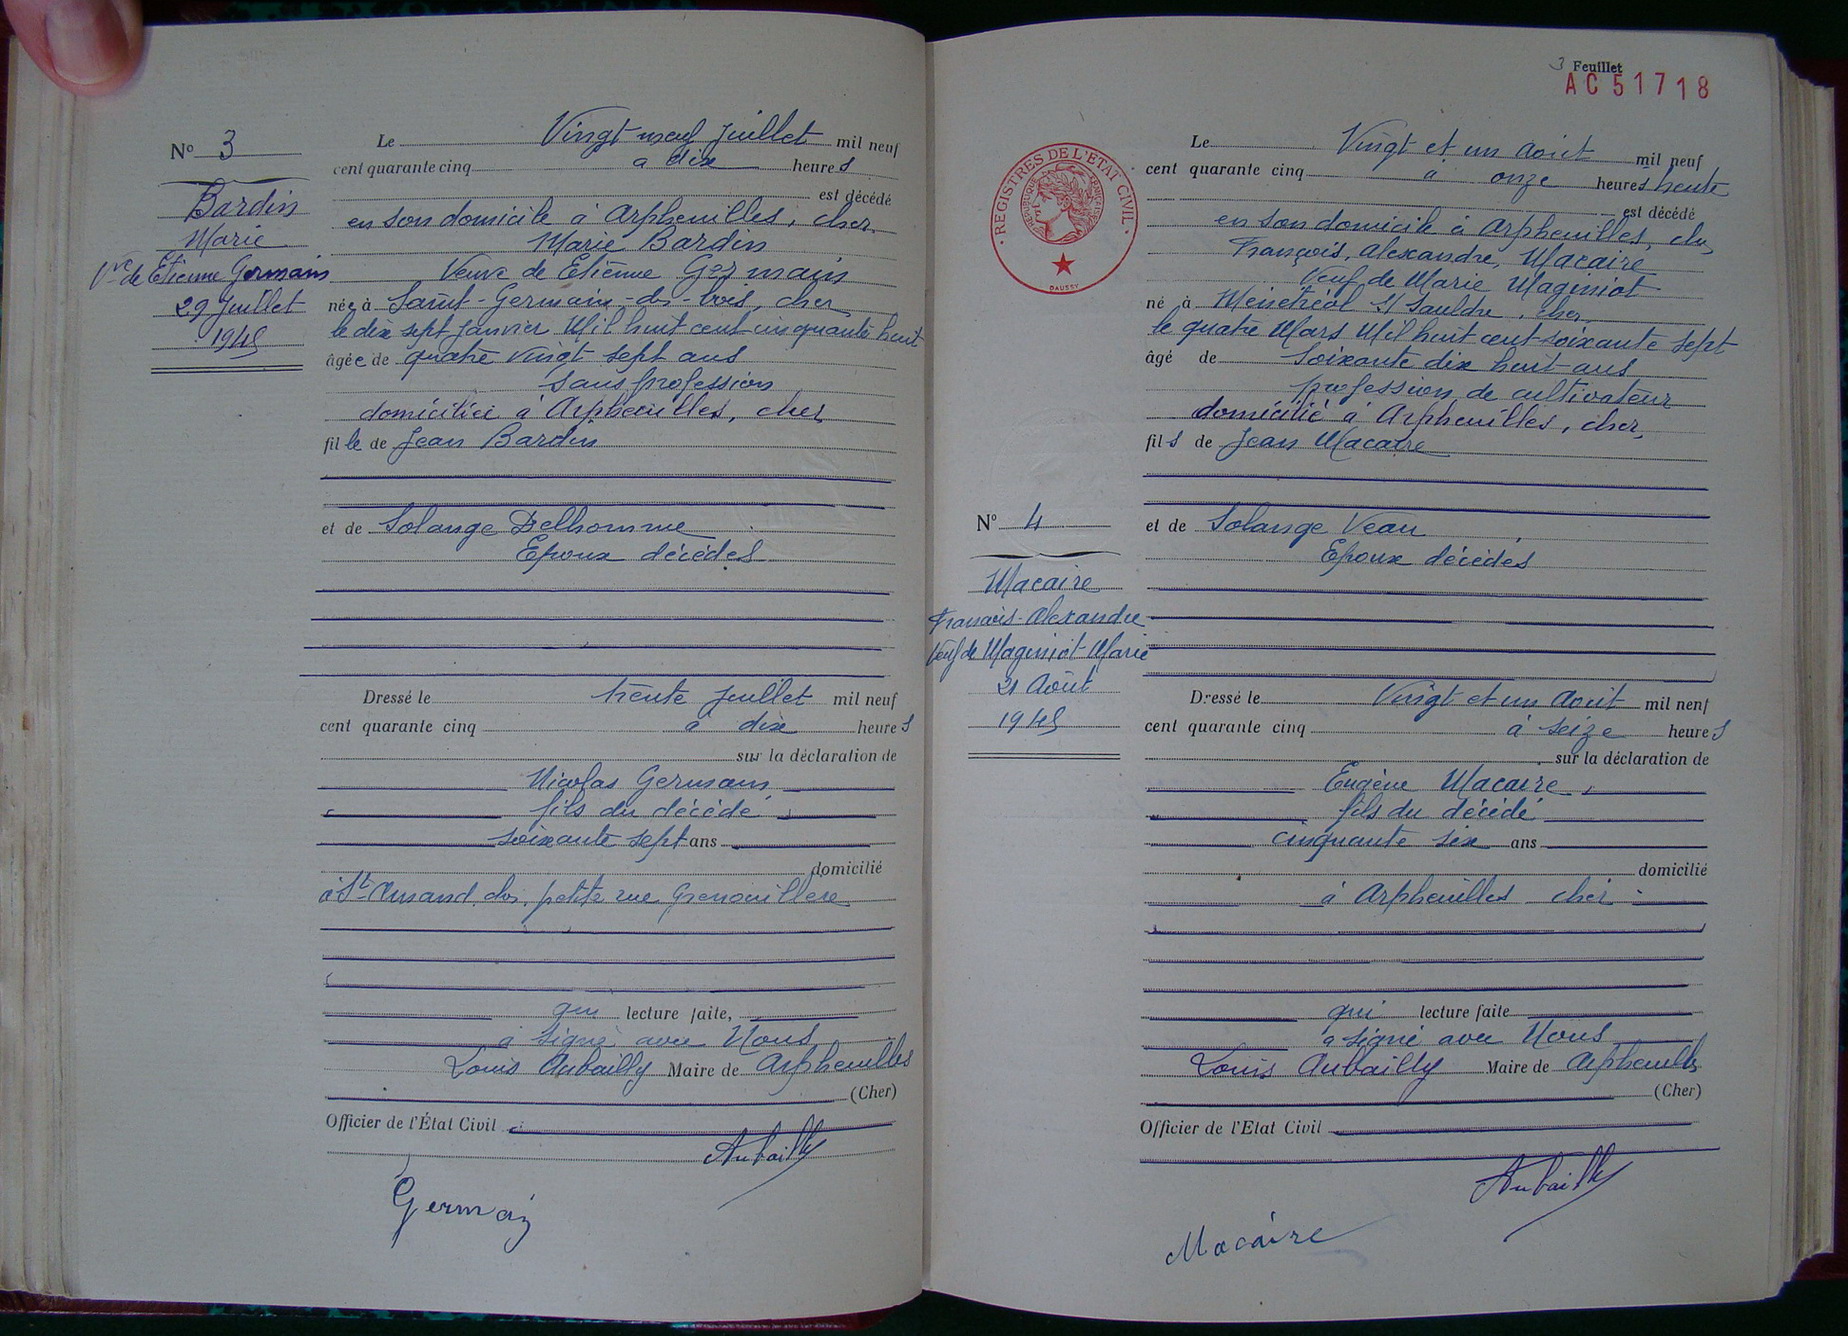 Nº 3
Bardin
Marie
Vve de Etienne Germain
29 Juillet
1945
Le Vingt neuf Juillet mil neuf
cent quarante cinq à dix heures
est décédé
en son domicile à Arpheuilles, cher.
Marie Bardin
Veuve de Etienne Germain
née à Saint-Germain-des-bois, cher
le dix sept Janvier Mil huit cent cinquante huit
âgée de quatre vingt sept ans
Sans profession
domiciliée à Arpheuilles, cher
fille de Jean Bardin
et de Solange Delhomme
Epoux décédés
Dressé le trente Juillet mil neuf
cent quarante cinq à dix heures
sur la déclaration de
Nicolas Germain
fils du décédé
soixante sept ans
domicilié
à St Amand, petite rue Grenouillere
qui lecture faite,
a signé avec Nous
Louis Aubailly Maire de Arpheuilles
(Cher)
Officier de l'État Civil
Aubailly
Germain
3 Feuillet
AC 51718
REGISTRES DE L'ETAT CIVIL
REPUBLIQUE FRANCAISE
DAUSSY
Le Vingt et un Août mil neuf
cent quarante cinq à onze heures trente
est décédé
en son domicile à Arpheuilles,
François, Alexandre, Macaire
Veuf de Marie Maginiot
né à Menetréol S/ Sauldre, cher
le quatre Mars Mil huit cent soixante sept
âgé de Soixante dix huit ans
profession de cultivateur
domicilié à Arpheuilles, cher,
fils de Jean Macaire
Nº 4
Macaire
François-Alexandre
Veuf de Maginiot Marie
21 Août
1945
et de Solange Veau
Epoux décédés
Dressé le Vingt et un Août mil neuf
cent quarante cinq à seize heures
sur la déclaration de
Eugène Macaire,
fils du décédé
cinquante six ans
domicilié
à Arpheuilles cher
qui lecture faite
a signé avec Nous
Louis Aubailly Maire de Arpheuilles
(Cher)
Officier de l'Etat Civil
Aubailly
Macaire